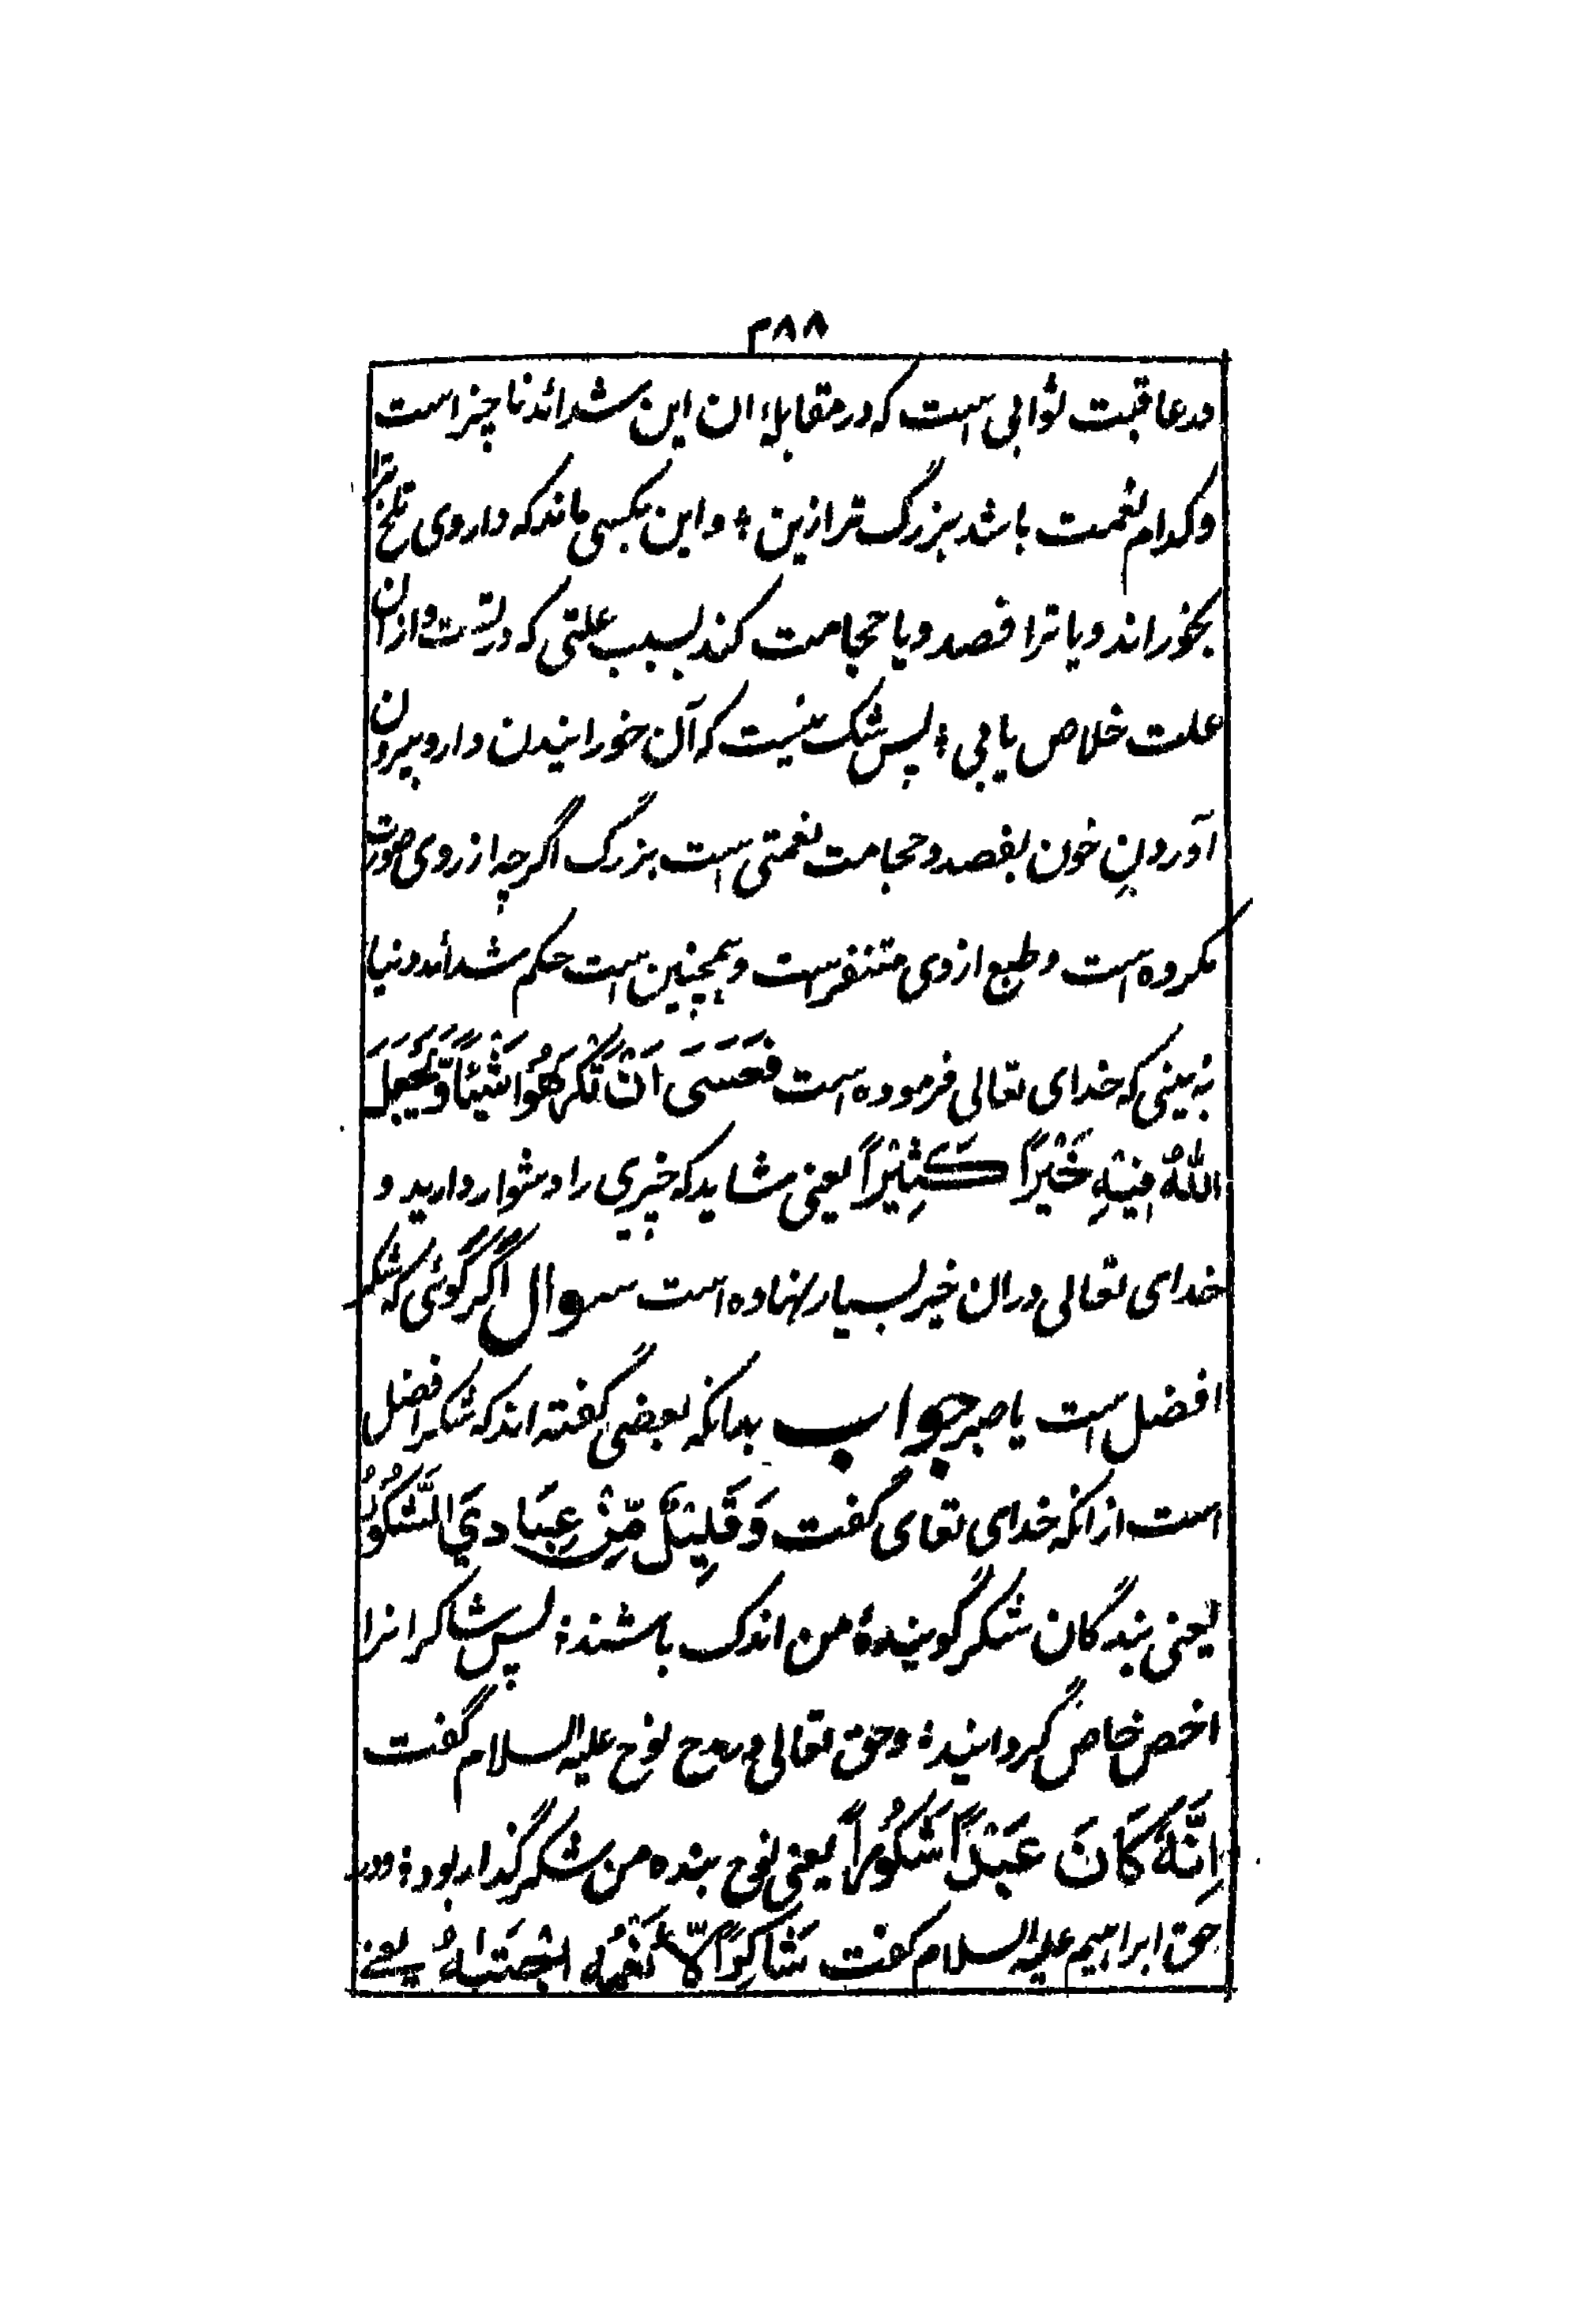 ۲۸۸
در عاقبت ثوابی است که در مقابلهٔ ان این شدائد ناچیز است
و کدام نعمت باشد بزرگ تر ازین ؛ و این بکسی ماند که داروی تلخ ترا
بخوراند و یا ترا فصد و یا حجامت کند بسبب علتی که در تست و از ان
علت خلاص یابی ؛ پس شک نیست که آن خورانیدن دارو بیرون
آوردنِ خون بفصد و حجامت نعمتی است بزرگ اگرچه از روی صورت
مکروه است و طبع از وی متنفرست و همچنین است حکم شدائد دنیا
نه بینی که خدای تعالی فرموده است فَعَسَىٰ اَنْ تَكْرَهُوْا شَيْئًا وَّيَجْعَلَ
اللّٰهُ فِيْهِ خَيْرًا كَثِيْرًا یعنی شاید که چیزی را دشوار دارید و
خدای تعالی دران خیر بسیار نهاده است سوال اگر گوئی که شکر
افضل است یا صبر جواب بدانکه بعضی گفته اند که شکر افضل
است ازانکه خدای تعای گفت وَقَلِيْلٌ مِّنْ عِبَادِيَ الشَّكُوْرُ
یعنی بندگان شکر گویندهٔ من اندک باشند ؛ پس شاکرانرا
اخص خاص گردانید ؛ و حق تعالی در مدح نوح علیه السلام گفت
اِنَّهٗ كَانَ عَبْدًا شَكُوْرًا یعنی نوح بنده من شکر گذار بود ؛ و در
حق ابراهیم علیه السلام گفت شَاكِرًا لِّاَنْعُمِهٖ اجْتَبٰىهُ یعنے